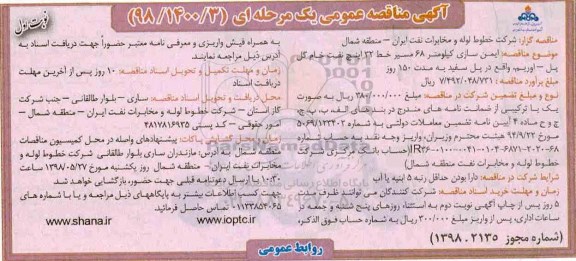 آگهی مناقصه عمومی یک مرحله ای (۹۸/۱۴۰۰/۳)
نوبت اول
مناقصه گزار: شرکت خطوط لوله و مخابرات نفت ایران - منطقه شمال
موضوع مناقصه: ایمن سازی کیلومتر ۶۸ مسیر خط ۳۲ اینچ نفت خام گل
پل - اوریم، واقع در پل سفید به مدت ۱۵۰ روز
مبلغ برآورد مناقصه: ۷/۴۹۲/۰۴۸/۷۳۱ ریال
نوع و مبلغ تضمین شرکت در مناقصه: مبلغ ۳۸۰/۰۰۰/۰۰۰ ریال به صورت
یک یا ترکیبی از ضمانت نامه های مندرج در بندهای الف، ب، پ،
ج و ح ماده ۴ آیین نامه تضمین معاملات دولتی به شماره ۵۰۶۹/۱۲۳۴۰۲
مورخ ۹۴/۹/۲۲ هیئت محترم وزیران، واریز وجه نقد به حساب شماره
(حساب بانک مرکزی شرکت
خطوط لوله و مخابرات نفت منطقه شمال)
شرایط شرکت در مناقصه: دارا بودن حداقل رتبه ۵ ابنیه یا آب
زمان و مهلت خرید اسناد مناقصه: شرکت کنندگان می توانند ظرف مهلت
۵ روز پس از چاپ آگهی نوبت دوم به استثناء روزهای پنج شنبه و جمعه در
ساعات اداری، پس از واریز مبلغ ۳۰۰/۰۰۰ ریال به شماره حساب فوق الذکر،
به همراه فیش واریزی و معرفی نامه معتبر حضوراً جهت دریافت اسناد به
آدرس ذیل مراجعه نمایند.
زمان و مهلت تکمیل و تحویل اسناد مناقصه: ۱۰ روز پس از آخرین مهلت
دریافت اسناد
محل دریافت و تحویل اسناد مناقصه: ساری - بلوار طالقانی - جنب شرکت
گاز استان - شرکت خطوط لوله و مخابرات نفت ایران - منطقه شمال -
امور حقوقی - کد پستی ۴۸۱۷۸۱۶۹۳۵
زمان و محل گشایش پاکات: پیشنهادهای واصله در محل کمیسیون مناقصات
منطقه شمال به آدرس: مازندران ساری بلوار طالقانی شرکت خطوط لوله و
مخابرات نفت ایران - منطقه شمال روز یکشنبه مورخ ۱۳۹۸/۰۵/۲۷ ساعت
۱۰:۳۰ با ارسال دعوتنامه قبلی جهت حضور، بازگشایی خواهد شد.
جهت کسب اطلاعات بیشتر به پایگاههای ذیل مراجعه و یا با شماره های
تماس حاصل فرمائید.
www.shana.ir www.ioptc.ir
(شماره مجوز ۱۳۹۸.۲۱۳۵)
روابط عمومی